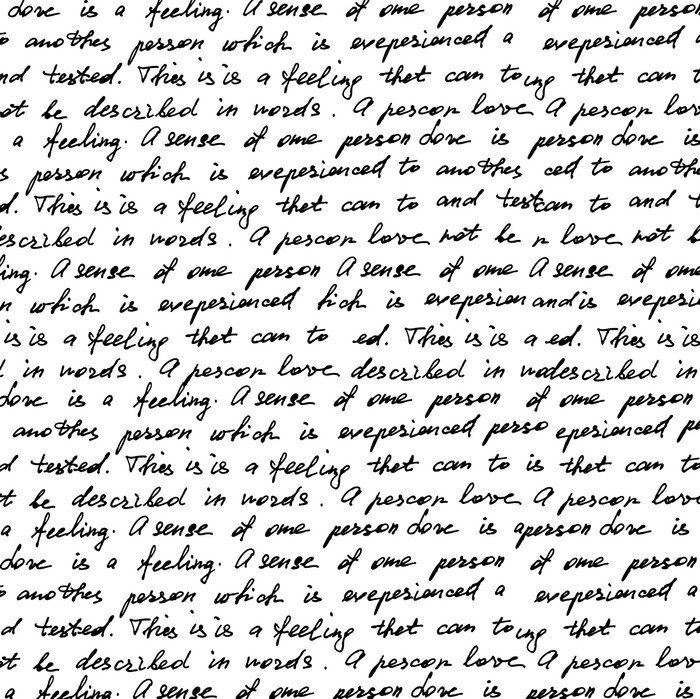 dove is a feeling. A sense of ome person of ome person
anothes person which is evepesienced a evepesienced
nd tested. Thies is is a feeling thet can to ing thet can t
ot be described in words. A pescor love A pescor lov
a feeling. A sense of ome person dove is person dove is
s person which is evepesienced to anothes ced to anothe
d. Thies is is a feeling thet can to and test can to and t
escribed in words. A pescor love not be r love not b
ling. A sense of ome person A sense of ome A sense of ome
n which is evepesienced hich is evepesien and is evepesi
is is a feeling thet can to ed. Thies is is a ed. Thies is is
in words. A pescor love described in wodescribed in
dove is a feeling. A sense of ome person of ome person
anothes person which is evepesienced perso epesienced pe
d tested. Thies is is a feeling thet can to is thet can to
t be described in words. A pescor love A pescor love
a feeling. A sense of ome person dove is aperson dove is
dove is a feeling. A sense of ome person of ome person
anothes person which is evepesienced a evepesienced a
d tested. Thies is is a feeling thet can to ing thet can to
t be described in words. A pescor love A pescor love
a feeling. A sense of ome person dove is person dove is